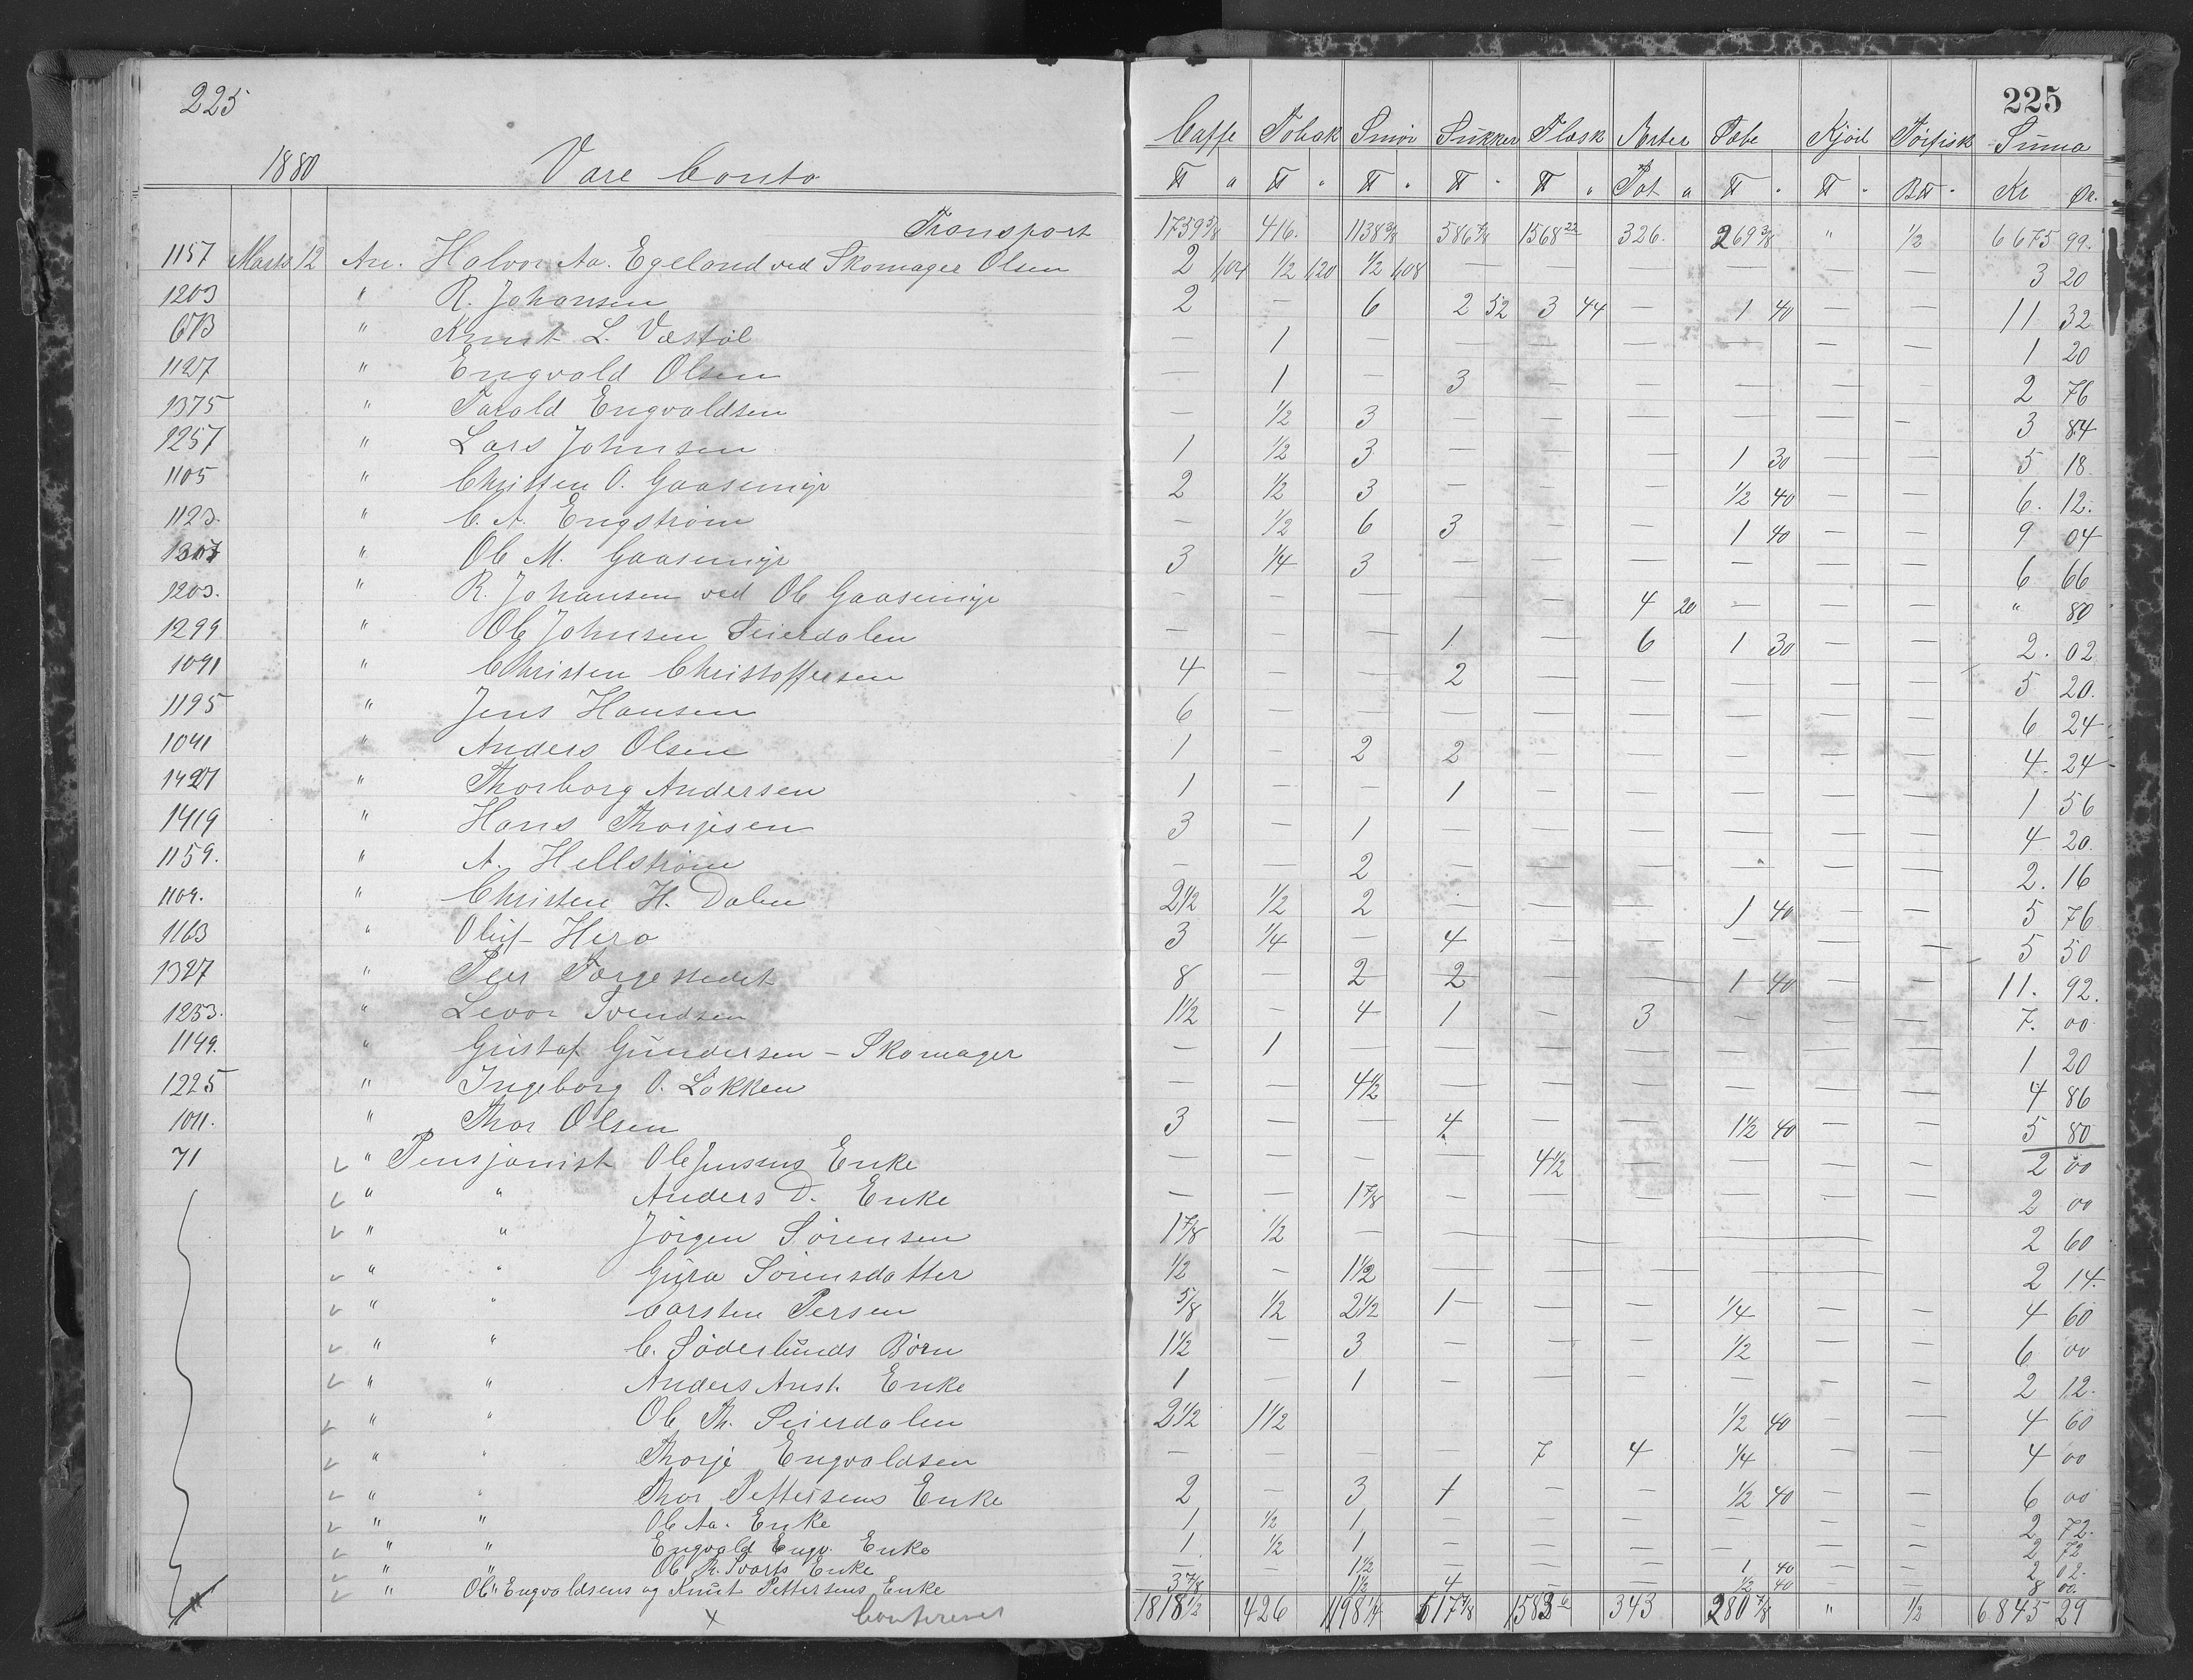 225
1880 Vare Conto
225
Caffe Tobak Smör Sukker Flæsk Ærter Sæbe Kjöd Törfisk Suma
℔ a ℔ " ℔ " ℔ " ℔ " Pot a ℔ " ℔ " B℔ " Kr Ør.
Transport 1759 5/8 416. 1138 3/8 586 7/8 1568 22 326. 269 3/8 " 1/2 6675 99.
1157 Marts 12 An. Halvor Aa. Egeland ved Skomager Olsen 2 104 1/2 120 1/2 108 — — — — — — 3 20
1203 " R. Johansen 2 — 6 2 52 3 44 — 1 40 — — 11 32
673 " Knut L. Væstöl — 1 — — — — — — — 1 20
1127 " Engvald Olsen — 1 — 3 — — — — — 2 76
1375 " Tarald Engvaldsen — 1/2 3 — — — — — — 3 84
1257 " Lars Johnsen 1 1/2 3 — — — 1 30 — — 5 18
1105 " Christen O. Gaasemyr 2 1/2 3 — — — 1/2 40 — — 6. 12.
1123. " C. A. Engström — 1/2 6 3 — — 1 40 — — 9 04
1307 " Ole M. Gaasemyr 3 1/4 3 — — — — — — 6 66
1203. " R. Johansen ved Ole Gaasemyr — — — — — 4 20 — — — " 80
1299 " Ole Johnsen Seierdalen — — — 1 — 6 1 30 — — 2. 02
1091 " Christen Christoffersen 4 — — 2 — — — — — 5 20.
1195 " Jens Hansen 6 — — — — — — — — 6 24
1041 " Anders Olsen 1 — 2 2 — — — — — 4. 24
1427 " Thorborg Andersen 1 — — 1 — — — — — 1 56
1419 " Hans Thorjesen 3 — 1 — — — — — — 4 20.
1159. " A. Hellström — — 2 — — — — — — 2. 16
1109. " Christen H. Dalen 2 1/2 1/2 2 — — — 1 40 — — 5 76
1163 " Oluf Hera 3 1/4 — 4 — — — — — 5 50
1327 " Peer Torgestedet 8 — 2 2 — — 1 40 — — 11. 92.
1253. " Levor Svendsen 1 1/2 — 4 1 — 3 — — — 7. 00
1149. " Gustaf Gundersen - Skomager — 1 — — — — — — — 1 20
1225 " Ingeborg O. Lökken — 4 1/2 — — — — — — 4 86
1011. " Thor Olsen 3 — — 4 — — 1 1/2 40 — — 5 80
71 " Pensjonist Ole Jensens Enke — — — — 4 1/2 — — — — 2 00
" " Anders D. Enke — — 1 7/8 — — — — — — 2 00
" " Jörgen Sörensen 1 7/8 1/2 — — — — — 2 60
" " Gyra Sörensdatter 1/2 — 1 1/2 — — — — — 2 14.
" " Carsten Persen 5/8 1/2 2 1/2 1 — — 1/4 — — 4 60
" " C. Söderlunds Börn 1 1/2 — 3 — — — 1/2 — — 6 00
" " Anders Anst. Enke 1 — 1 — — — — — — 2 12.
" " Ole Th. Seierdalen 2 1/2 1 1/2 1/2 40 — — 4 60
" " Thorje Engvaldsen — — — — 7 4 1/4 — — 4 00
" " Thor Pettersens Enke 2 — 3 1 — — 1/2 40 — — 6 00
" " Ole Aa. Enke 1 1/2 1 — — — — — — 2 72.
" " Engvald Engv. Enke 1 1/2 1 — — — — — — 2 72
" " Ole R. Svarts Enke — — 1 1/2 — — — 1 40 — — 2 02.
" Ole Engvaldsens og Knut Pettersens Enke 3 7/8 1 1/2 4 — — 1/2 40 — — 8 00.
x Confereret 1818 1/2 426 1198 1/4 617 7/8 1583 6 343 280 7/8 " 1/2 6845 29